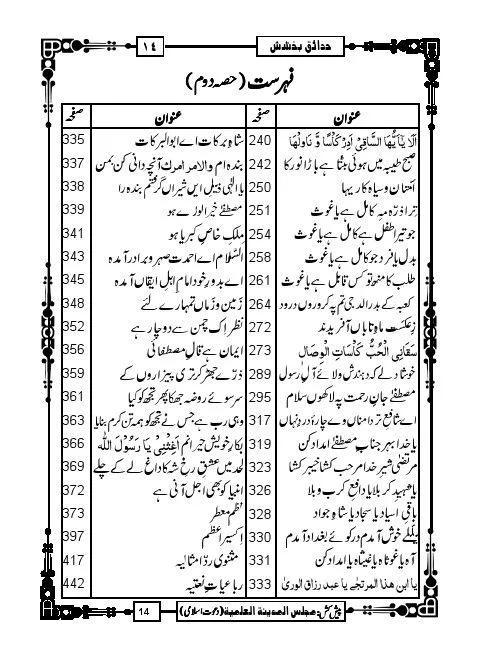 حدائق بخشش
۱٤
فہرست (حصہ دوم)
عنوان صفحہ عنوان صفحہ
اَلَا یٰۤاَیُّھَا السَّاقِیْ اَدِرْ كَأْسًا وَّ نَاوِلْھَا 240
صبح طیبہ میں ہوئی بٹتا ہے باڑا نور کا 242
امتنان و سیاہ کاریہا 250
ترا ذرّہ مہِ کامل ہے یا غوث 251
جو تیرا طفل ہے کامل ہے یا غوث 254
بدل یا فرد جو کامل ہے یا غوث 258
طلب کا منھ تو کس قابل ہے یا غوث 261
کعبہ کے بدر الدجی تم پہ کروروں درود 264
زعکست ماہ تاباں آفریدند 272
سَقَانِی الْحُبُّ كَاْسَاتِ الْوِصَالِ 273
خوشا دلے کہ دہندش ولائے آلِ رسول 289
مصطفےٰ جانِ رحمت پہ لاکھوں سلام 295
اے شافعِ تردامناں وے چارۂ دردِ نہاں 317
یا خدا بہرِ جنابِ مصطفےٰ امداد کن 319
مرتضیٰ شیرِ خدا مرحب کشا خیبر کشا 323
یا شہیدِ کربلا یا دافعِ کرب و بلا 326
باقی اسیاد یا سجاد یا شاہِ جواد 328
بلکے خوش آمدم در کوئے بغداد آمدم 330
آہ یا غوثاہ یا غیثاہ یا امداد کن 331
یا ابن ھذا المرتجٰے یا عبد رزاق الوریٰ 333
شاہِ برکات اے ابوالبرکات 335
بندہ ام والامر امرك آنچہ دانی کن بمن 337
یا الٰہی ذیل ایں شیراں گرفتم بندہ را 338
مصطفےٰ خیرُ الورٰے ہو 339
ملکِ خاصِ کبریا ہو 341
السَّلام اے احمدت صہر و برادر آمدہ 343
اے بدورِ خود امامِ اہلِ ایقاں آمدہ 345
زمین و زماں تمہارے لئے 348
نظر اک چمن سے دو چار ہے 352
ایمان ہے قالِ مصطفائی 356
ذرّے جھڑ کر تری پیزاروں کے 359
سر سوئے روضہ جھکا پھر تجھ کو کیا 361
وہی رب ہے جس نے تجھ کو ہمہ تن کرم بنایا 363
بکارِ خویش حیرانم اَغِثْنِیْ یَا رَسُوْلَ اللّٰہ 366
لحد میں عشقِ رخِ شہ کا داغ لے کے چلے 369
انبیا کو بھی اجل آنی ہے 372
نظم معطر 373
اکسیر اعظم 397
مثنوی ردّ امثالیہ 417
رباعیات نعتیہ 442
پیش کش: مجلس المدینة العلمیة (دعوت اسلامی)
14